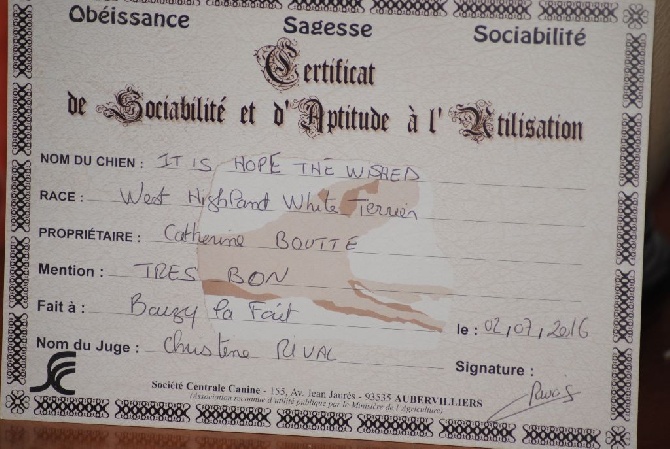 Obéissance Sagesse Sociabilité
Certificat
de Sociabilité et d'Aptitude à l'Utilisation
NOM DU CHIEN : IT IS HOPE THE WISHED
RACE : West Highland White Terrier
PROPRIÉTAIRE : Catherine BOUTTE
Mention : TRES BON
Fait à : Bouzy la Foret le : 02,07,2016
Nom du Juge : Christene RIVAL
Signature :
Société Centrale Canine - 155, Av. Jean Jaurès - 93535 AUBERVILLIERS
(Association reconnue d'utilité publique par le Ministère de l'Agriculture)